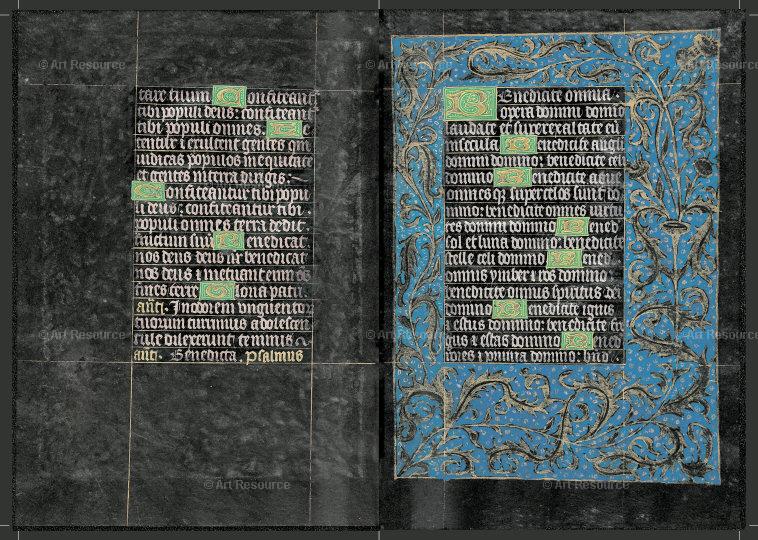 tare tuum Confiteant
tibi populi deus: confiteant
tibi populi omnes. Le
tentur & exultent gentes qm
iudicas populos in equitate
et gentes in terra dirigis:
Confiteantur tibi popu
li deus: confiteantur tibi
populi omnes terra dedit
fructum suū Benedicat
nos deus deus nr benedicat
nos deus & metuant eum oēs
fines terre Gloria patri.
ant. In odorem vnguentor
tuorum currimus adolescen
tule dilexerunt te nimis
ant. Benedicta. psalmus
Benedicite omnia
opera domini domio
laudate et superexaltate eū
in secula Benedicite angli
domini domino: benedicite celi
domino Benedicite aque
omnes q super celos sunt do
mino: benedicite omnes virtu
tes domini domino Bened
sol et luna domino: benedicite
stelle celi domino Bened
omnis ymber & ros domino:
benedicite omnis spiritus dei
domino Benedicite ignis
& estus domino: benedicite fri
gus & estas domino Bened
rores & pruina domino: bnd
© Art Resource
© Art Resource
© Art Resource
© Art Resource
© Art Resource
© Art Resource
© Art Resource
© Art Resource